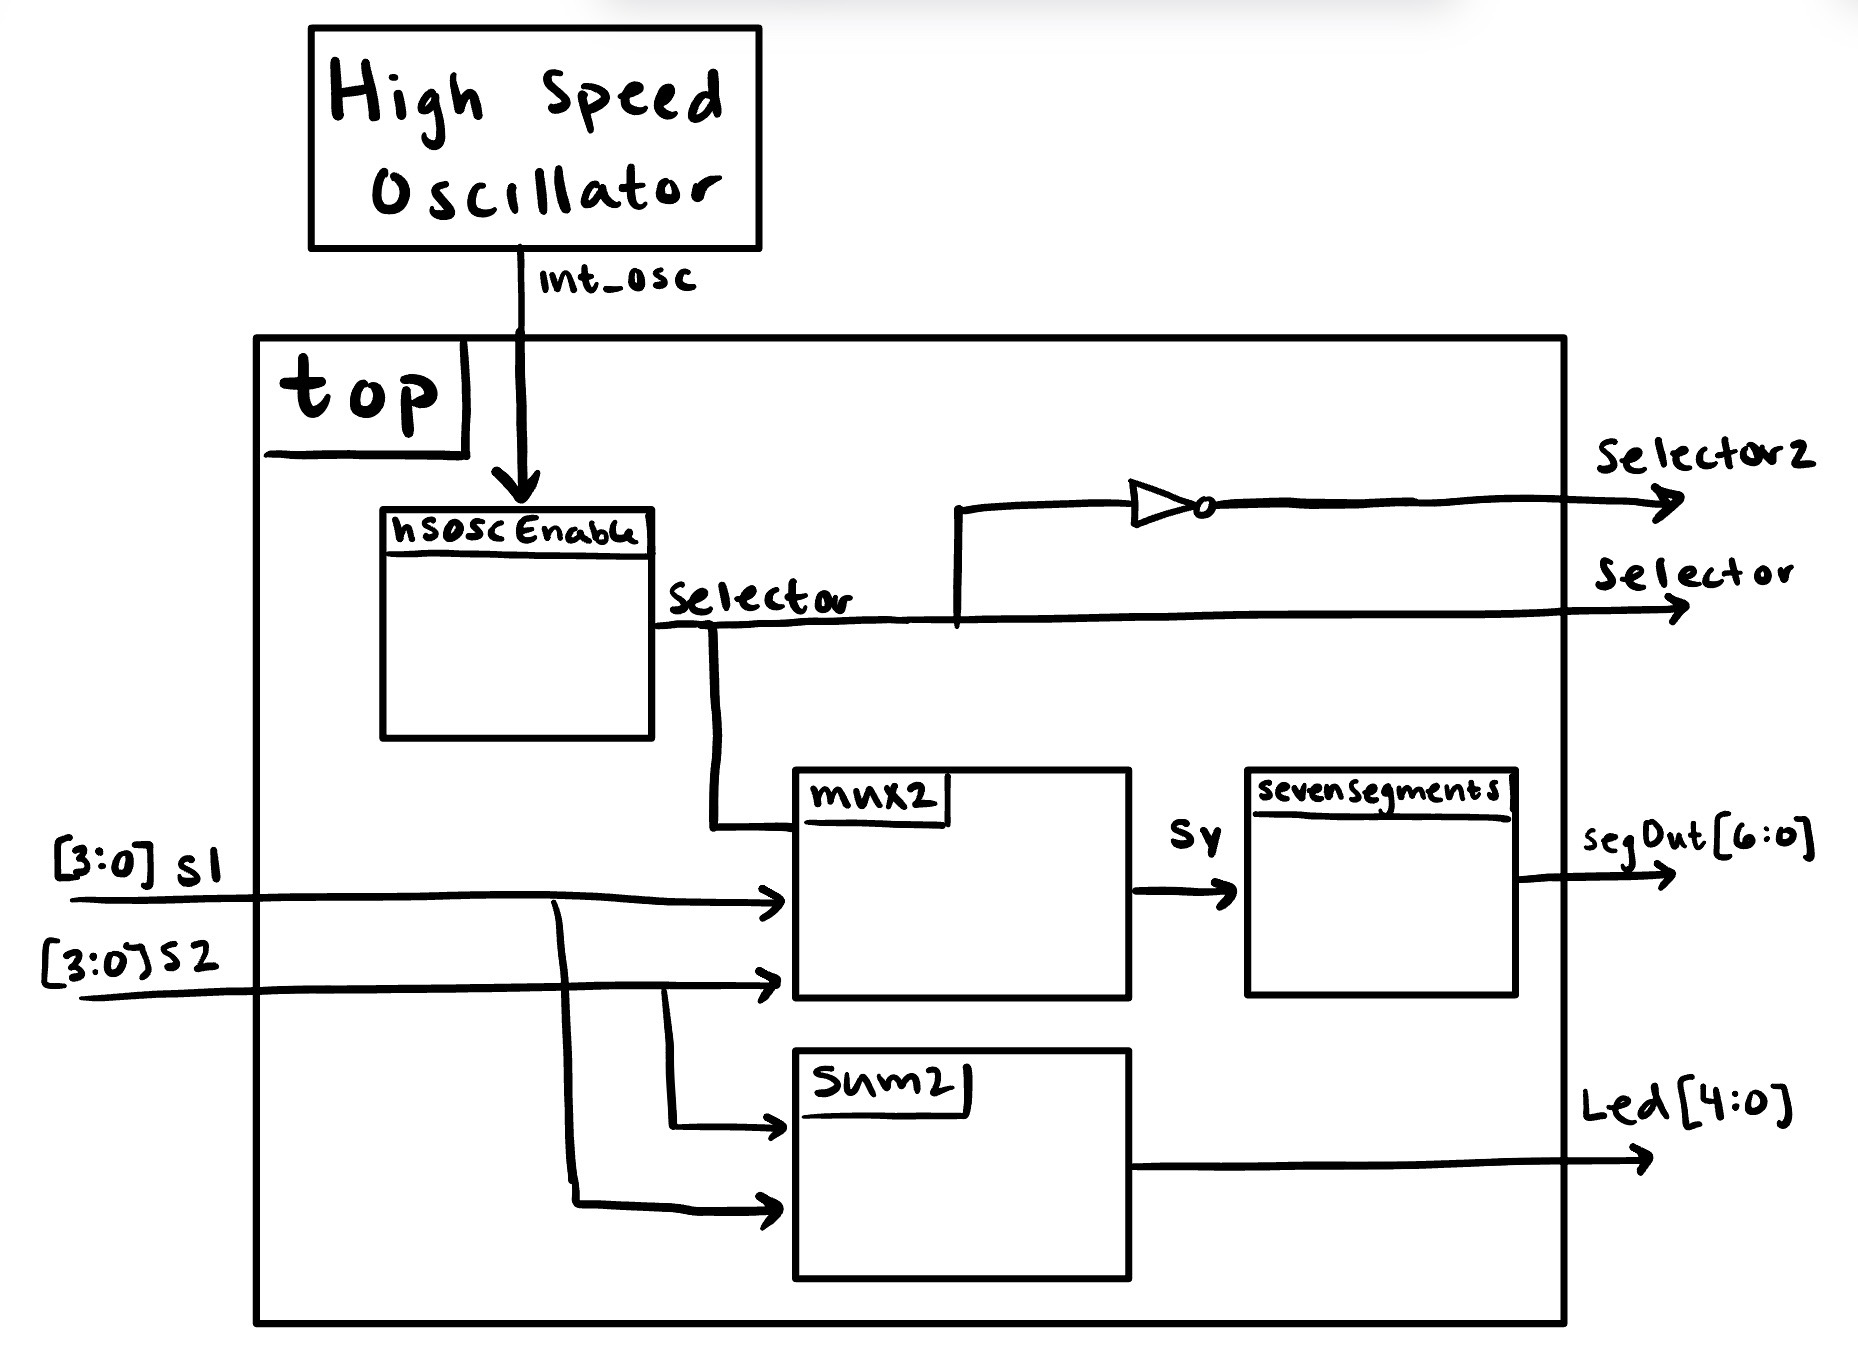 High Speed
Oscillator
int_osc
top
hsoscEnable
selector
Selector2
Selector
mux2
sevenSegments
Sy
segOut[6:0]
[3:0] S1
[3:0] S2
Sum2
Led[4:0]